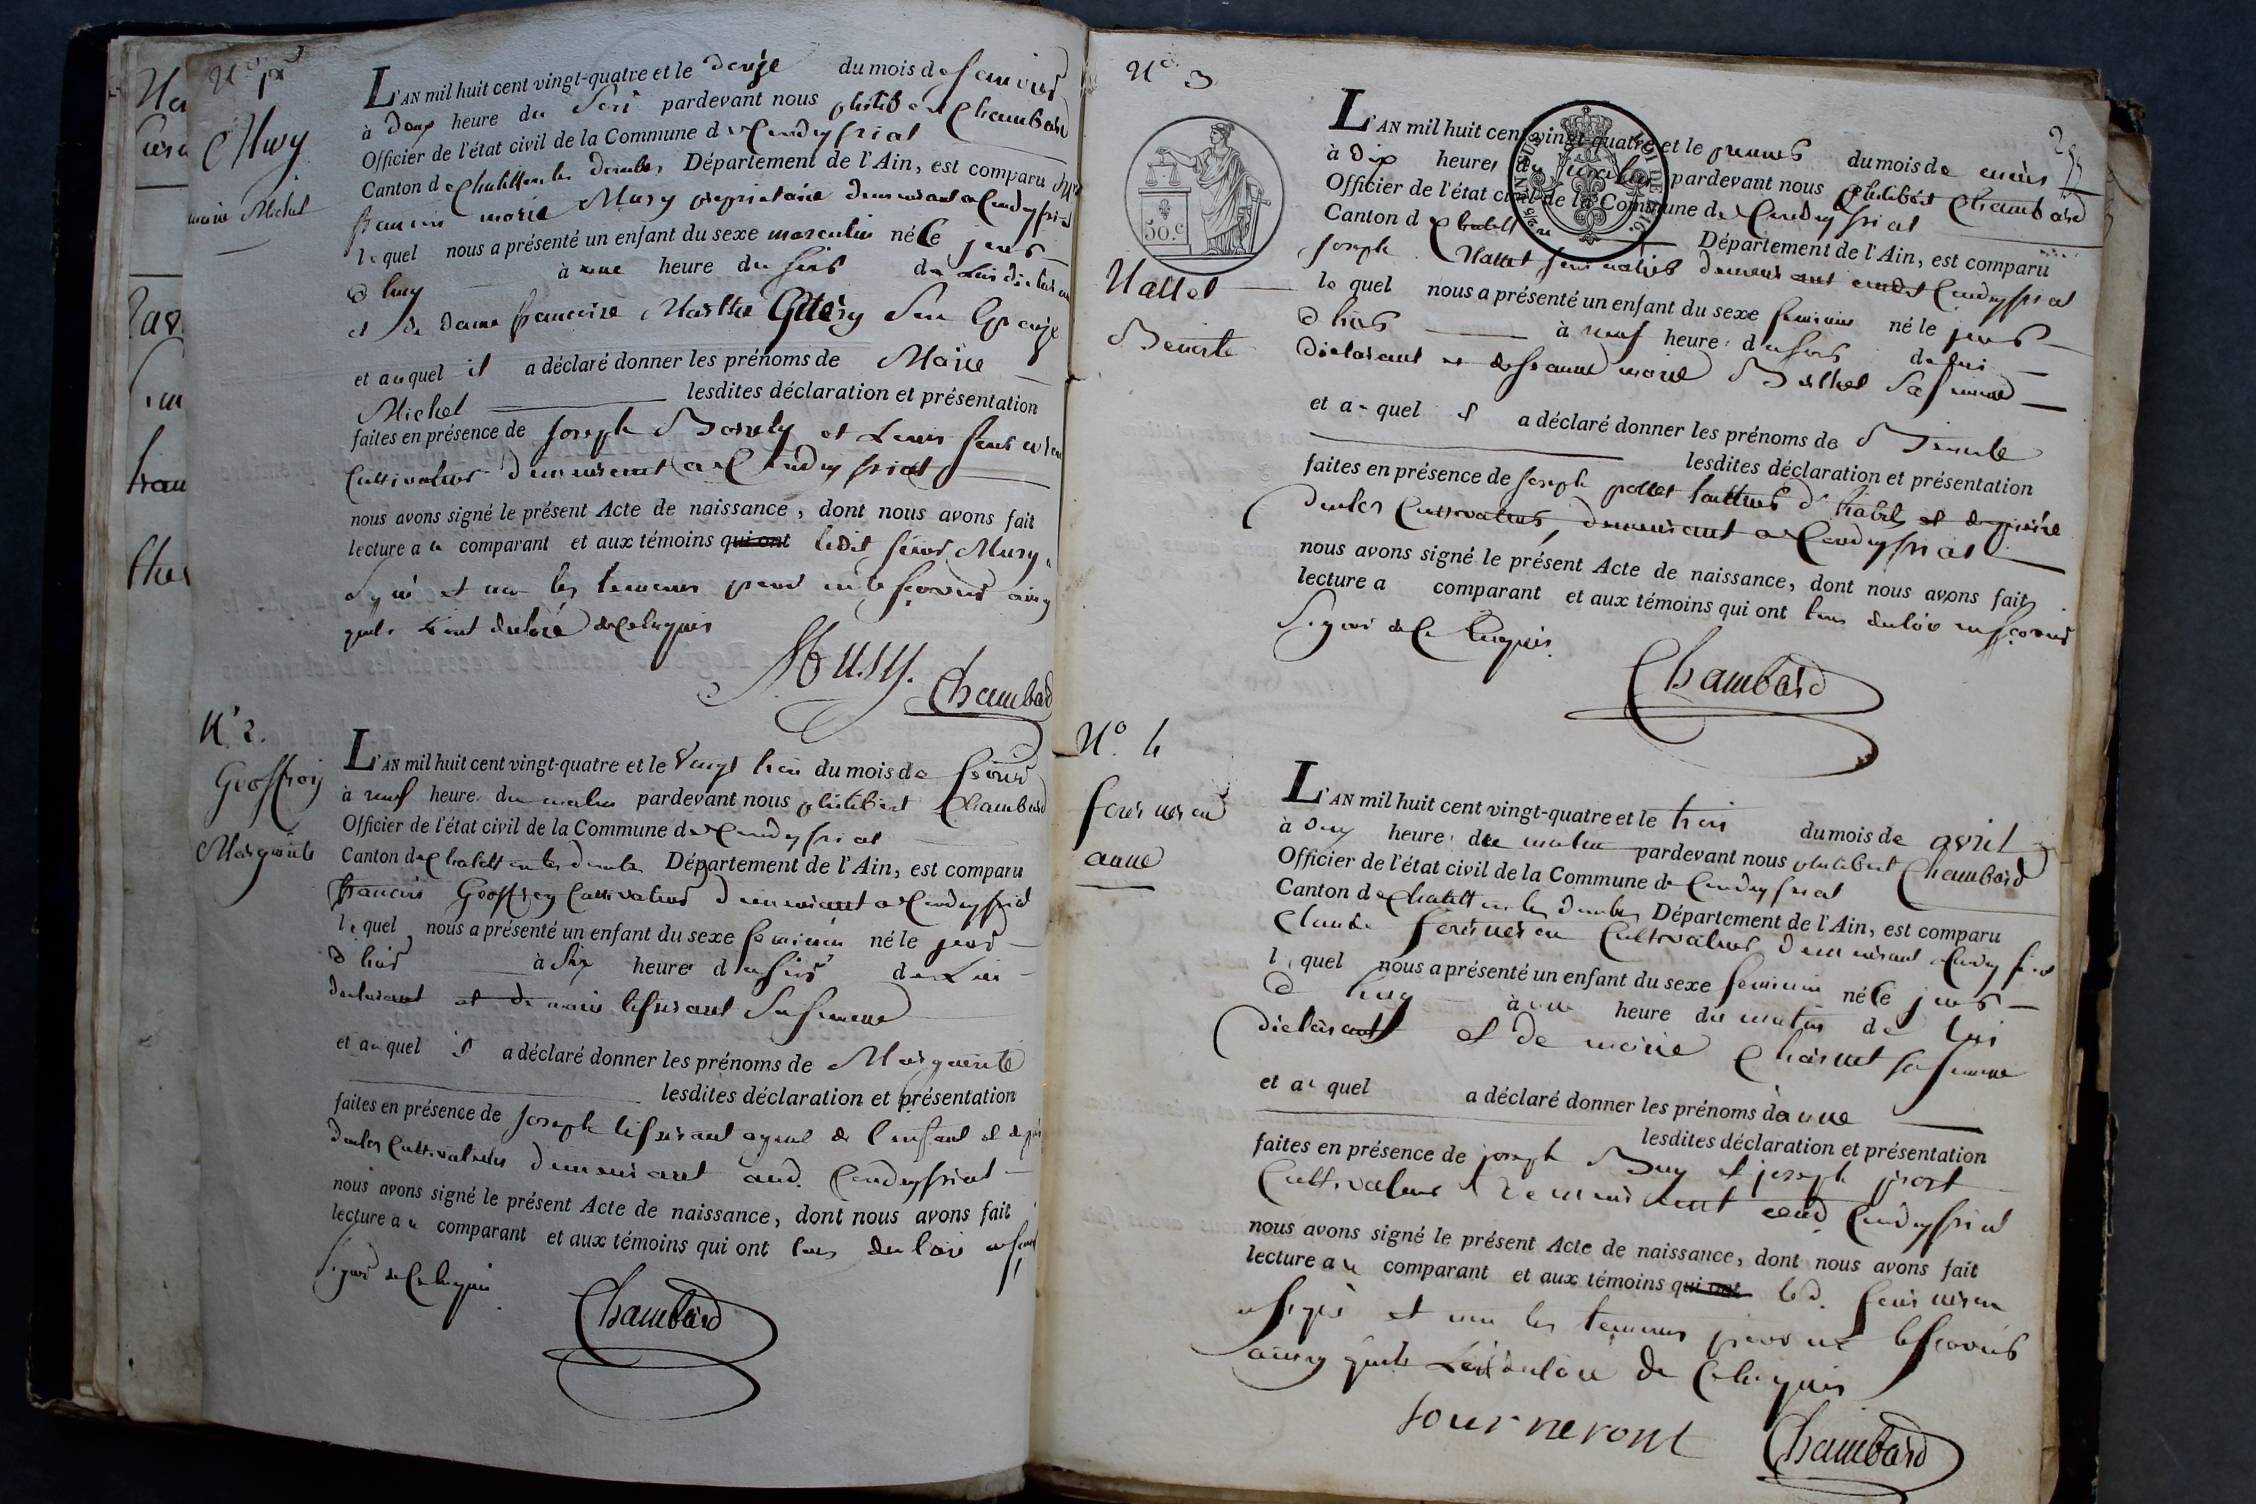 N° 1er
Musy
marie Michel
L'AN mil huit cent vingt-quatre et le douze du mois de janvier
à deux heure du soir pardevant nous philibert Chambard
Officier de l'état civil de la Commune de Condeyssiat
Canton de Chatillon les dombes Département de l'Ain, est comparu
françois marie Musy propriétaire demeurant a Condeyssiat
lequel nous a présenté un enfant du sexe masculin né le jour
d'huy à une heure du soir de Lui déclarant
et de dame francoise Marthe
et auquel il a déclaré donner les prénoms de Marie
Michel lesdites déclaration et présentation
faites en présence de Joseph et Louis
Cultivateurs demeurant a Condeyssiat
nous avons signé le présent Acte de naissance, dont nous avons fait
lecture au comparant et aux témoins qui ont ledit sieur Musy a
signé et non les temoins pour ne le sçavoir ainsy
quils L'ont declaré de ce Enquis
Musy. Chambard
N° 2.
Geoffroy
Marguerite
L'AN mil huit cent vingt-quatre et le Vingt trois du mois de fevrier
à neuf heure du matin pardevant nous philibert Chambard
Officier de l'état civil de la Commune de Condeyssiat
Canton de Chatillon les dombes Département de l'Ain, est comparu
françois Geoffroy Cultivateur demeurant a Condeyssiat
lequel nous a présenté un enfant du sexe feminin né le jour
d'hier à six heure du soir de Lui
declarant et de marie tisserant Sa femme
et auquel il a déclaré donner les prénoms de Marguerite
lesdites déclaration et présentation
faites en présence de Joseph tisserant ayeul de l'enfant et de
Cultivateurs demeurant aud. Condeyssiat
nous avons signé le présent Acte de naissance, dont nous avons fait
lecture au comparant et aux témoins qui ont tous declaré
signer de Ce Enquis.
Chambard
N° 3
50.c
Nallet
Benoite
L'AN mil huit cent vingt-quatre et le premier du mois de mars
à dix heures du matin pardevant nous philibert Chambard
Officier de l'état civil de la Commune de Condeyssiat
Canton de Chatillon Département de l'Ain, est comparu
Joseph Nallet journalier demeurant aud. Condeyssiat
lequel nous a présenté un enfant du sexe feminin né le jour
d'hier à neuf heure du soir de lui
declarant et de jeanne marie Berthet Sa femme
et auquel il a déclaré donner les prénoms de Benoite
lesdites déclaration et présentation
faites en présence de Joseph pollet tailleur d'habits et de pierre
Cultivateur, demeurant a Condeyssiat
nous avons signé le présent Acte de naissance, dont nous avons fait
lecture a comparant et aux témoins qui ont tous declaré ne sçavoir
Signer de Ce Enquis.
Chambard
N° 4
fourneron
anne
L'AN mil huit cent vingt-quatre et le trois du mois de avril
à onze heure du matin pardevant nous philibert Chambard
Officier de l'état civil de la Commune de Condeyssiat
Canton de Chatillon les dombes Département de l'Ain, est comparu
Claude fourneron Cultivateur demeurant a Condeyssiat
lequel nous a présenté un enfant du sexe feminin né le jour
d'huy à une heure du matin de lui
declarant et de marie Charnet sa femme
et auquel a déclaré donner les prénoms de anne
lesdites déclaration et présentation
faites en présence de joseph Buy et joseph prost
Cultivateurs demeurant aud Condeyssiat
nous avons signé le présent Acte de naissance, dont nous avons fait
lecture au comparant et aux témoins qui ont led. fourneron
a signé et non les temoins pour ne le sçavoir
ainsy quils L'ont declaré de Ce Enquis
fourneront Chambard